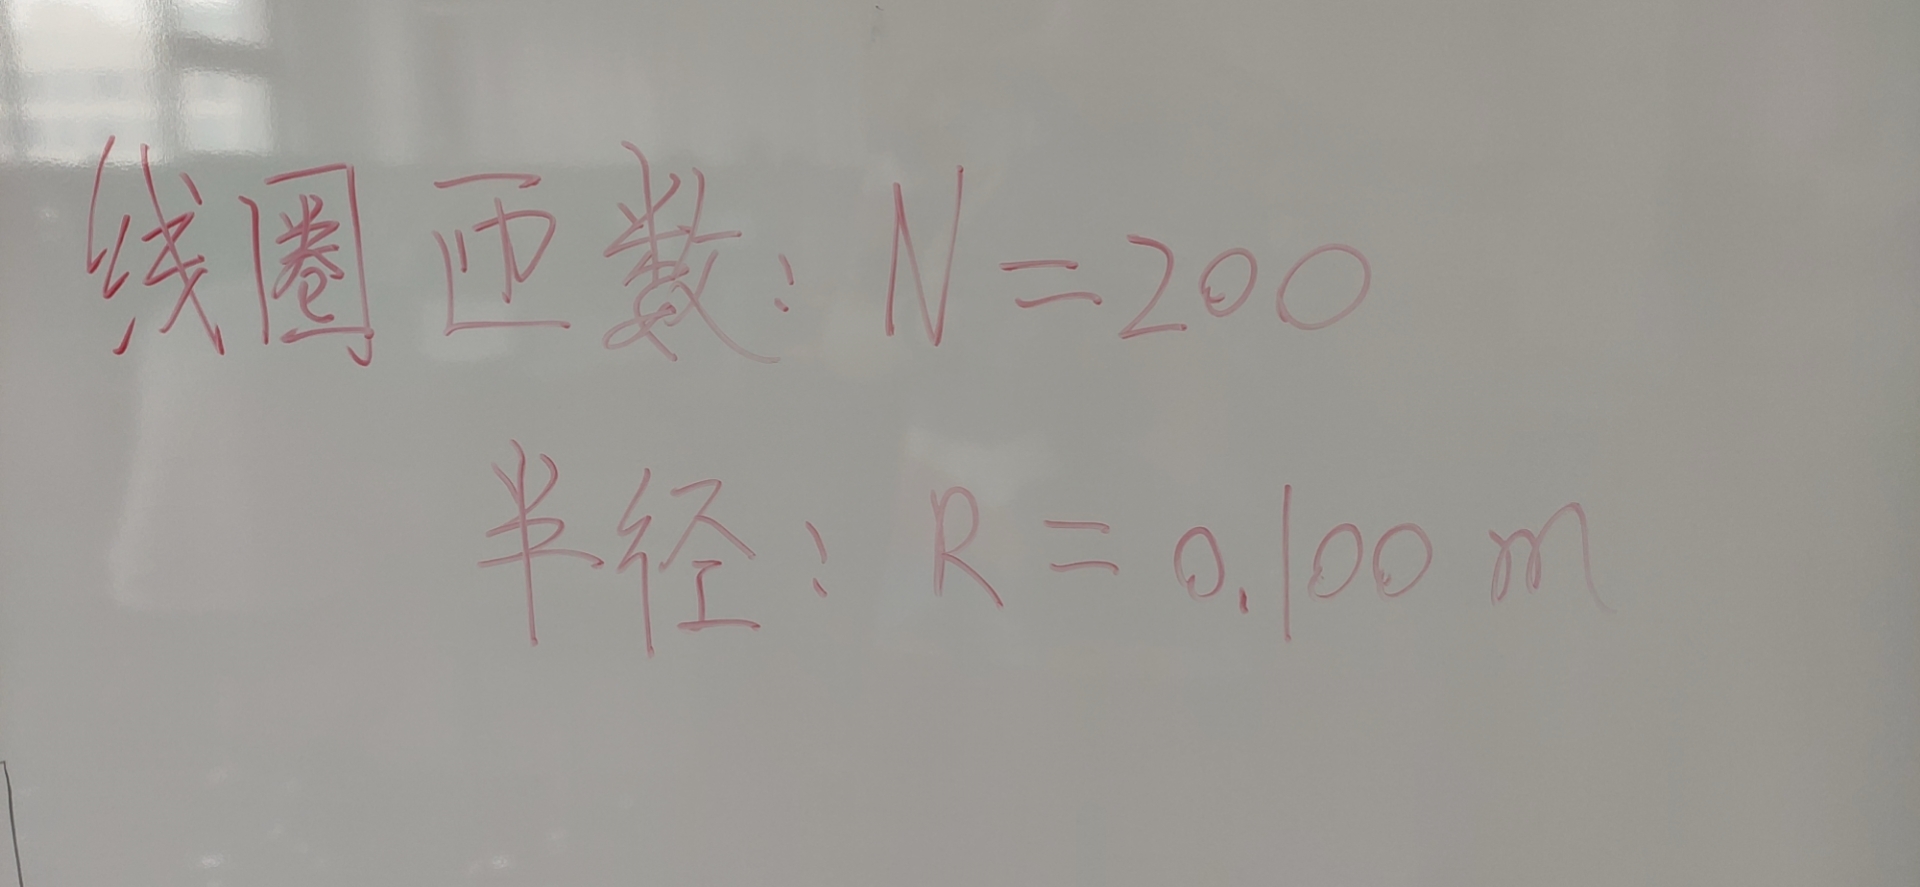 线圈匝数：N=200
半径：R=0.100 m